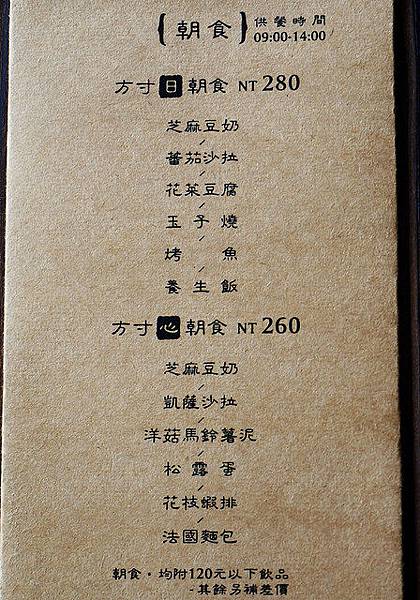 【朝食】 供餐時間
09:00-14:00
方寸日朝食 NT 280
芝麻豆奶
蕃茄沙拉
花菜豆腐
玉子燒
烤魚
養生飯
方寸心朝食 NT 260
芝麻豆奶
凱薩沙拉
洋菇馬鈴薯泥
松露蛋
花枝蝦排
法國麵包
朝食・均附120元以下飲品
-其餘另補差價